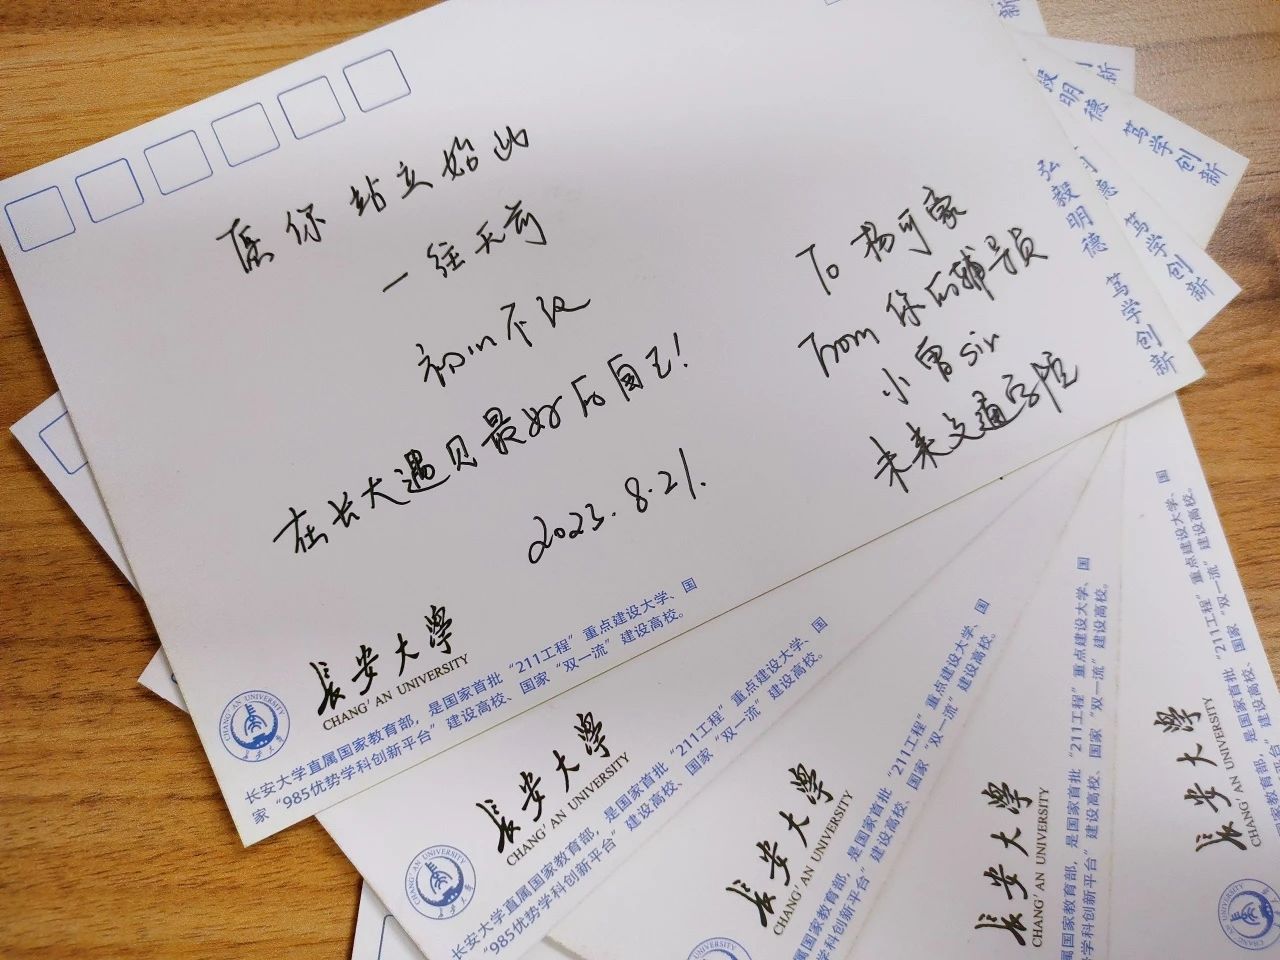 愿你站立始此
一往无前
初心不改
在长大遇见最好的自己!
2023.8.21.
To 杨可豪
From 你的辅导员
小曾sir
未来交通学院
弘毅明德 笃学创新
长安大学
CHANG'AN UNIVERSITY
长安大学直属国家教育部，是国家首批“211工程”重点建设大学、国
家“985优势学科创新平台”建设高校、国家“双一流”建设高校。
CHANG'AN UNIVERSITY
长安大学
长安大学
CHANG'AN UNIVERSITY
长安大学直属国家教育部，是国家首批“211工程”重点建设大学、国
“985优势学科创新平台”建设高校、国家“双一流”建设高校。
CHANG'AN UNIVERSITY
长安大学
CHANG'AN UNIVERSITY
，是国家首批“211工程”重点建设大学、国
学科创新平台”建设高校、国家“双一流”建设高校。
长安大学
CHANG'AN UNIVERSITY
育部，是国家首批“211工程”重点建设大学、国
学科创新平台”建设高校、国家“双一流”建设高校。
长安大学
CHANG'AN UNIVERSITY
，是国家首批“211工程”重点建设大学、国
台”建设高校、国家“双一流”建设高校。
毅明德 笃学创新
德 笃学创新
新